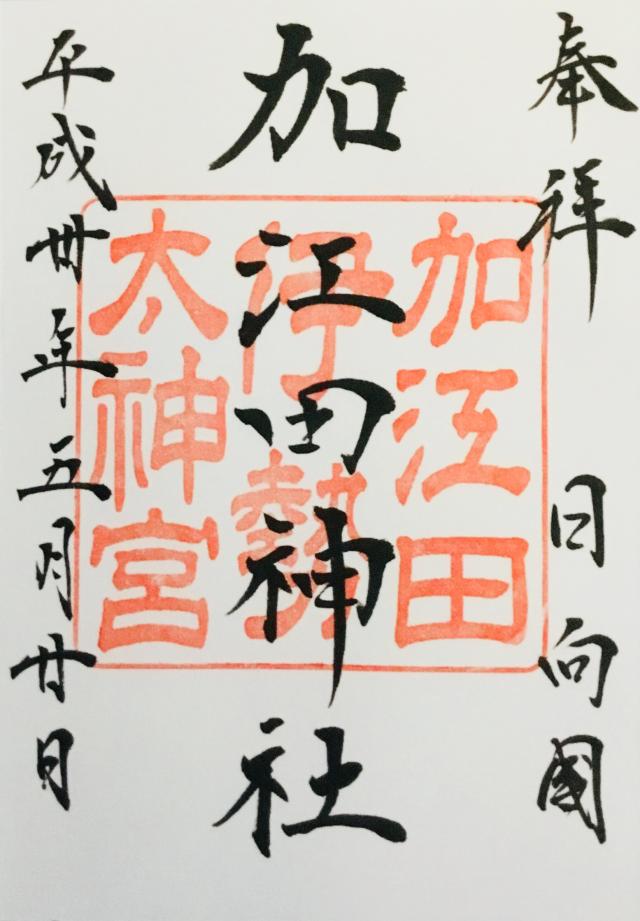 奉拝
日向國
加江田神社
加江田
伊勢
太神宮
平成卅年五月廿日